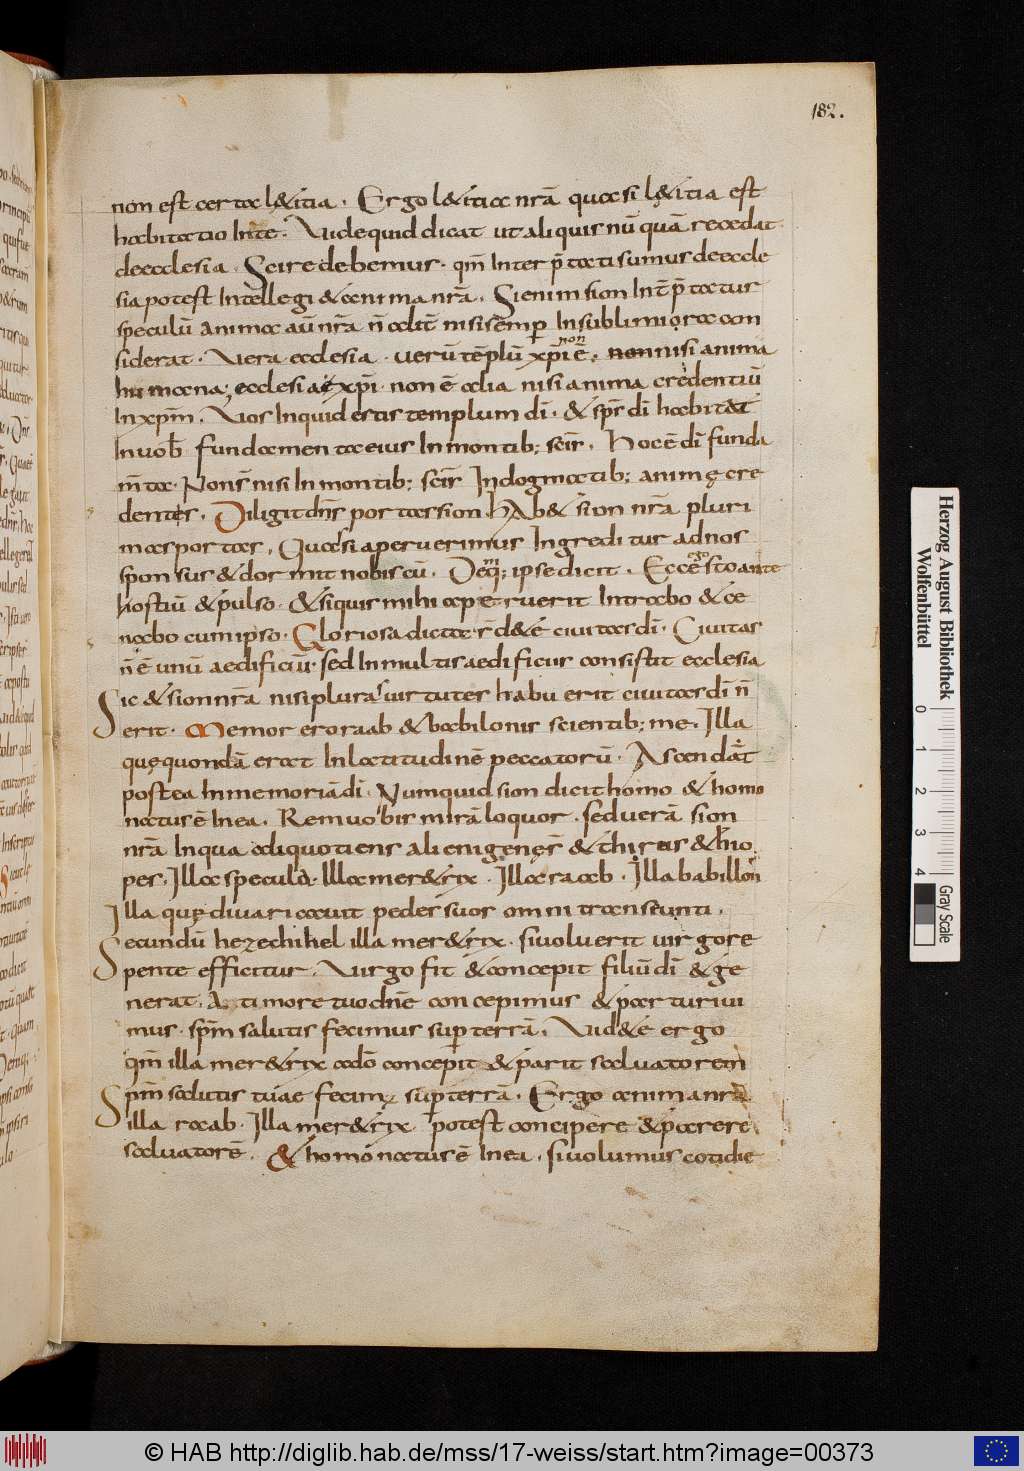 182.
non est certa l&itia. Ergo l&itiae nrā quasi l&itia est
habitatio Inte. Uide quid dicat ut aliquis nū quā recedat
deecclesia. Scire debemus. qm̄ Inter p̄tati sumus deeccle
sia potest Intellegi &anima nrā. Si enim sion Int̄p̄tatur
speculū animae aū nrā n̄ adit̄ nisi semp̱ In sublimiora con
siderat. Uera ecclesia. uerū tēplū xp̄i ē. non nisi anima
non
humana; ecclesia xp̄i. non ē alia nisi anima credentiū
Inxpm̄. Uos Inquid estis templum dī. & sps̄ dī habitat
Inuob̄ fundamenta eius In montib; scīs. Hoc ē dī funda
m̄ta. Non s̄ nisi In montib; scīs Indogmatib; animę cre
dentes. Diligit dn̄s portas sion. hAb& sion nrā pluri
mas portas. Quas si aperuerimus Ingreditur ad nos
sponsus & dormit nobis cū. Deq; ipse dicit. Ecce sto ante
ego
hostiū & pulso. & siquis mihi aperuerit Introabo & ce
nabo cum ipso. Gloriosa dicta s̄ d&ē ciuitas dī. Ciuitas
n̄ ē unū aedificiū. sed In multis aedificiis consistit ecclesia
Sic & sion nrā nisi plures uirtutes habuerit ciuitas dī n̄
erit. Memor ero raab & babilonis scientib; me. Illa
quę quondā erat In latitudinē peccatorū. Ascendat
postea In memoriā dī. Numquid sion dicit homo & homo
natus ē Inea. Rem uobis mirā loquor. sed uerā sion
nrā In qua aliquotiens alienigenęs & thirus & hio
pes. Illa specula. Illa mer&rix. Illa raab. Illa babillon
Illa quę diuaricauit pedes suos omni transeunti.
Secundū hezechihel illa mer&rix. si uoluerit uirgo re
pente efficitur. Uirgo fit & concepit filiū dī & ge
nerat. A timore tuo dn̄e concepimus & parturiui
mus. spm̄ salutis fecimus sup̱ terrā. Uid&e ergo
qm̄ illa mer&rix a dō concepit & parit saluatorem
Spm̄ salutis tuae fecim; sup̱ terrā. Ergo anima nrā
illa raab. Illa mer&rix potest concipere & parere
saluatorē. & homo natus ē Inea. si uolumus cotidie
Herzog August Bibliothek
Wolfenbüttel
0 1 2 3 4
Gray Scale
© HAB http://diglib.hab.de/mss/17-weiss/start.htm?image=00373